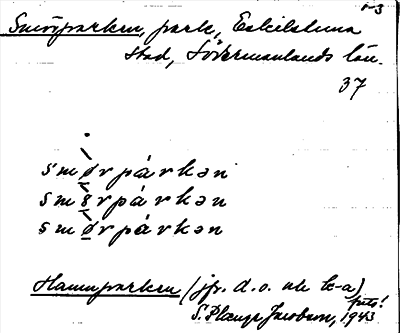 1-3
Smörparken, park, Eskilstuna
stad, Södermanlands län.
37
smørpárkən
smørpárkən
smørpárkən
Hamnparken (jfr. d.o. ute
foto!
S. Plænge Jacobson, 1943